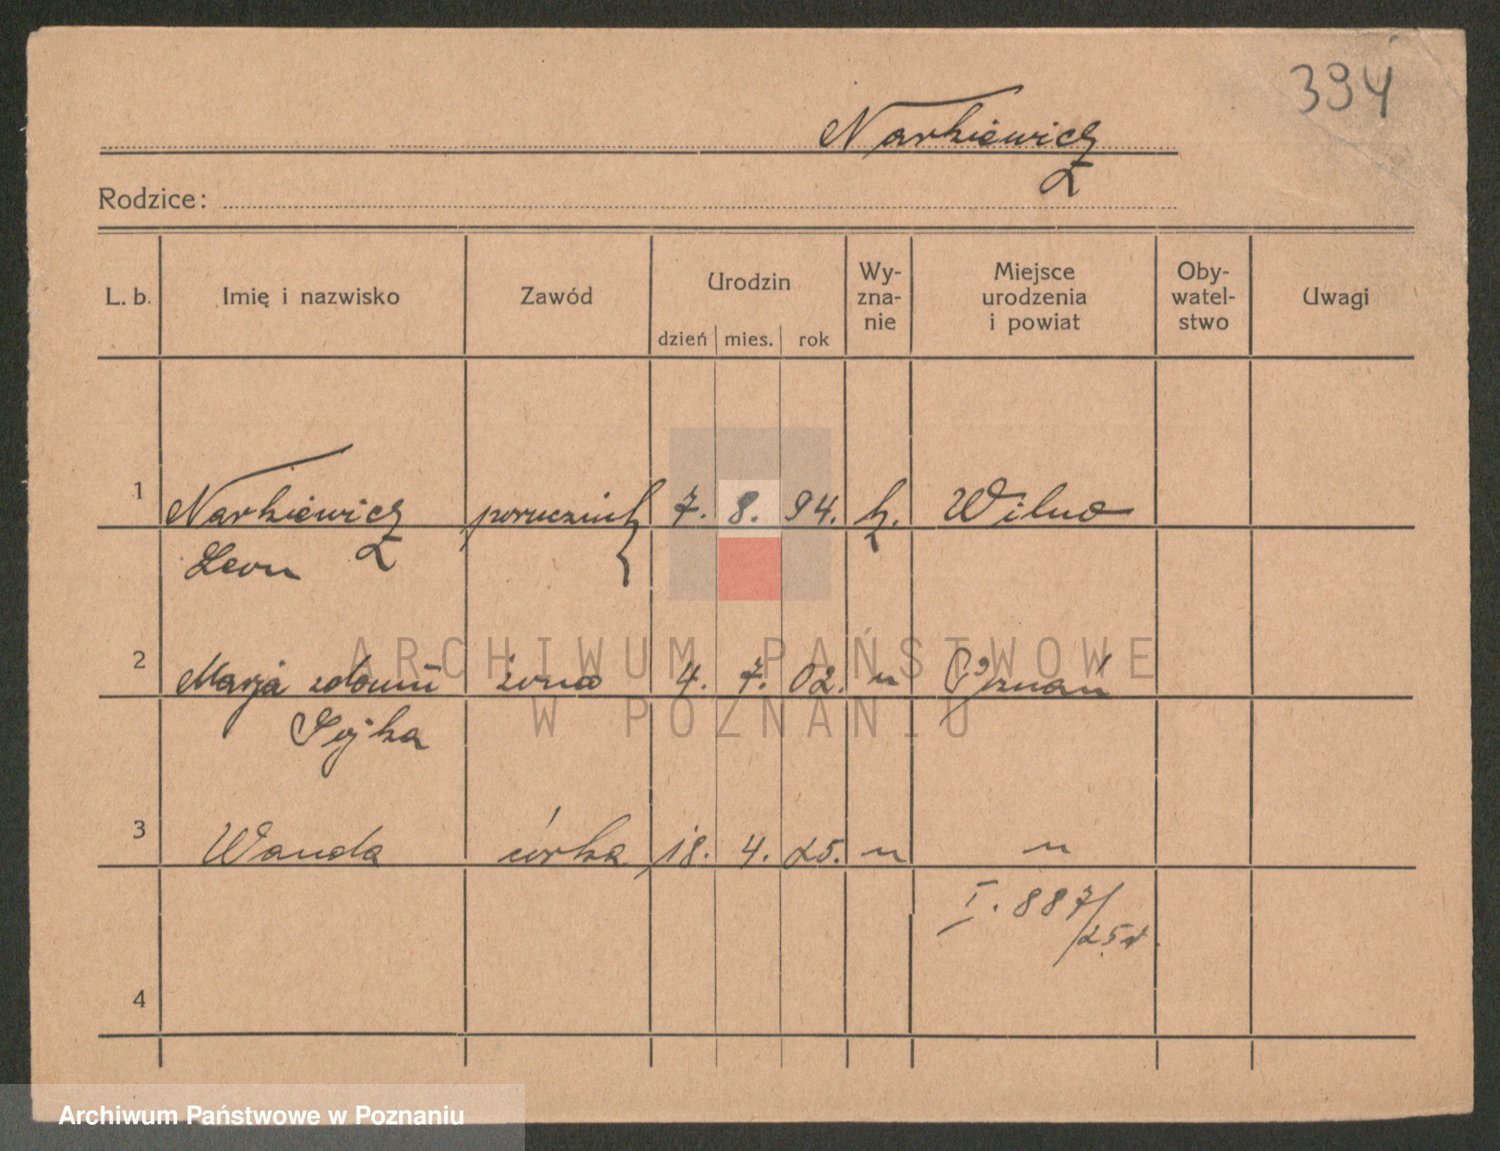 394
Narkiewicz
Rodzice:
L. b. Imię i nazwisko Zawód Urodzin dzień mies. rok Wy-zna-nie Miejsce urodzenia i powiat Oby-watel-stwo Uwagi
1 Narkiewicz porucznik 7. 8. 94. k. Wilno
Leon
ARCHIWUM PAŃSTWOWE
2 Marja z domu żona 4. 7. 02. " Poznań
W POZNANIU
Sojka
3 Wanda córka 18. 4. 25. " "
I. 887/
25
4
Archiwum Państwowe w Poznaniu